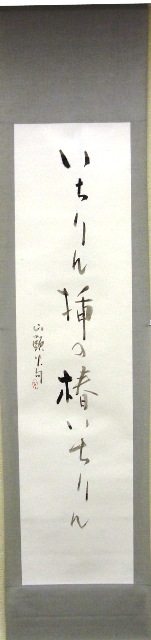 いちりん挿の椿いちりん
山頭火句